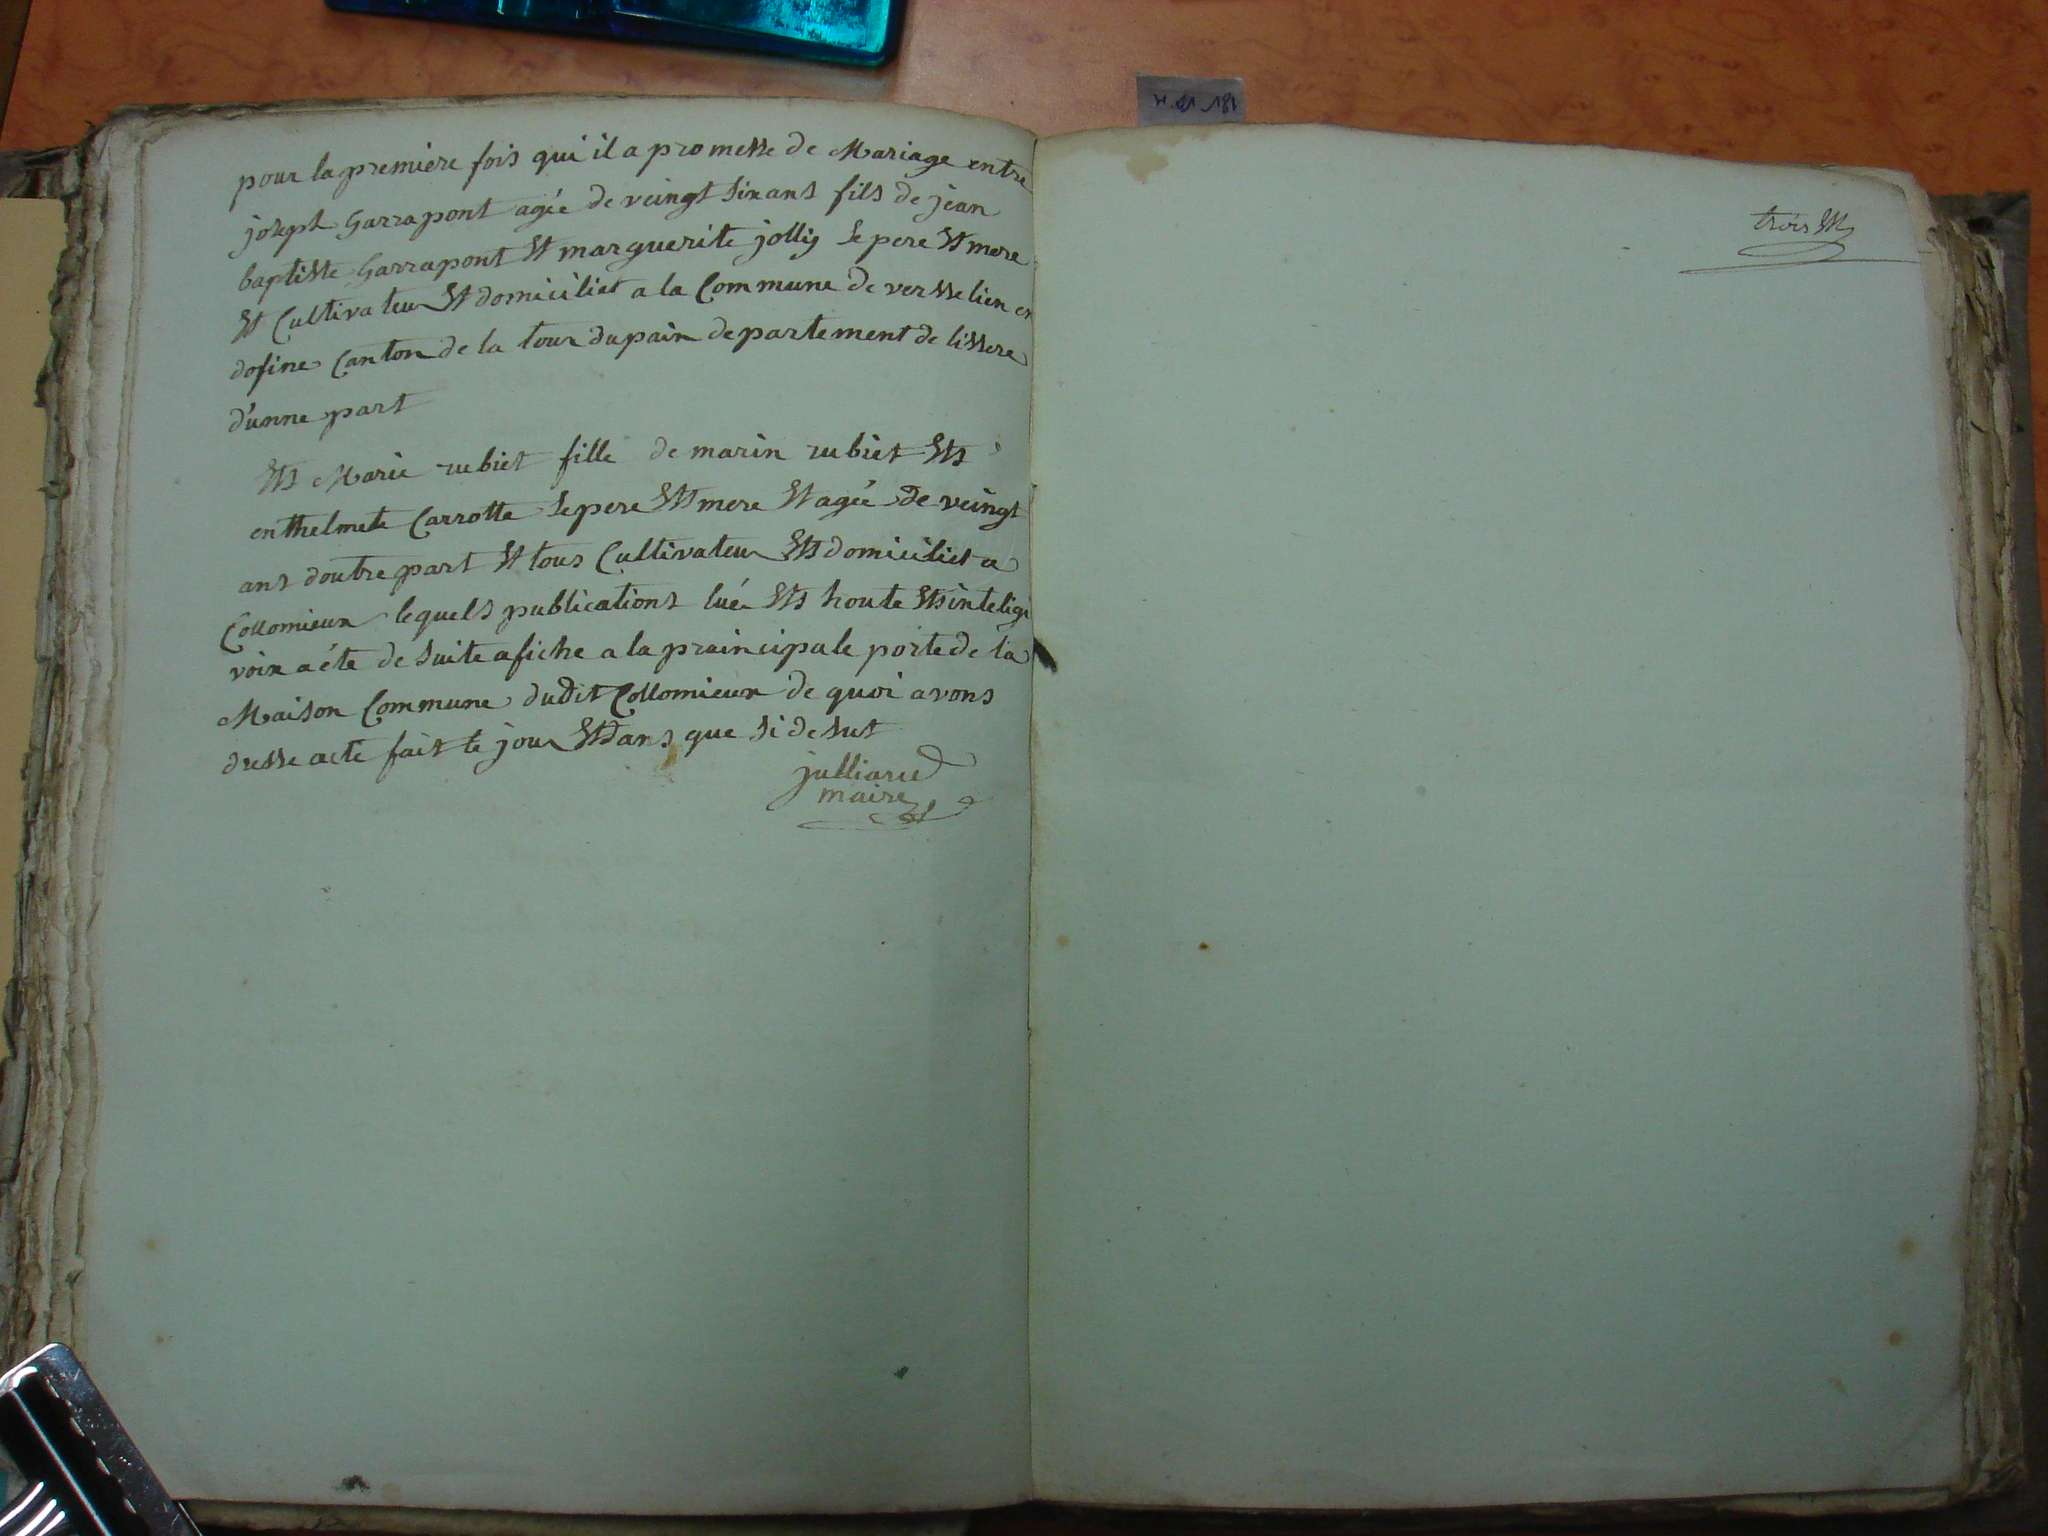 pour la premiere fois qui il a promesse de Mariage entre
joseph Garrapont agée de veingt six ans fils de jean
baptiste Garrapont Et marguerite jolliy se pere Et mere
Et Cultivateur Et domiciliet a la Commune de versselien en
dofine Canton de la tour du pain departement de lissere
d'unne part
Et Marie rubiet fille de marin rubiet Et
enthelmete Carrotte se pere Et mere Et agée de veingt
ans doutre part Et tous Cultivateur Et domiciliet a
Collomieux lequels publications luée Et houte Et inteligi
voix a éte de suite afiche a la praincipale porte de la
Maison Commune dudit Collomieux de quoi avons
dresse acte fait le jour Et dans que si desut
julliard
maire
trois